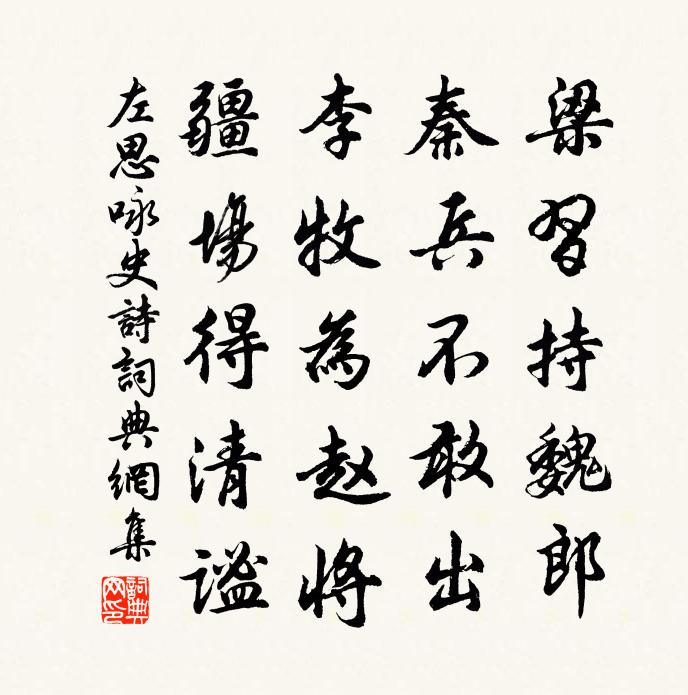 梁習持魏郎
秦兵不敢出
李牧為赵將
疆場得清謐
左思咏史詩詞典網集
詞典网印